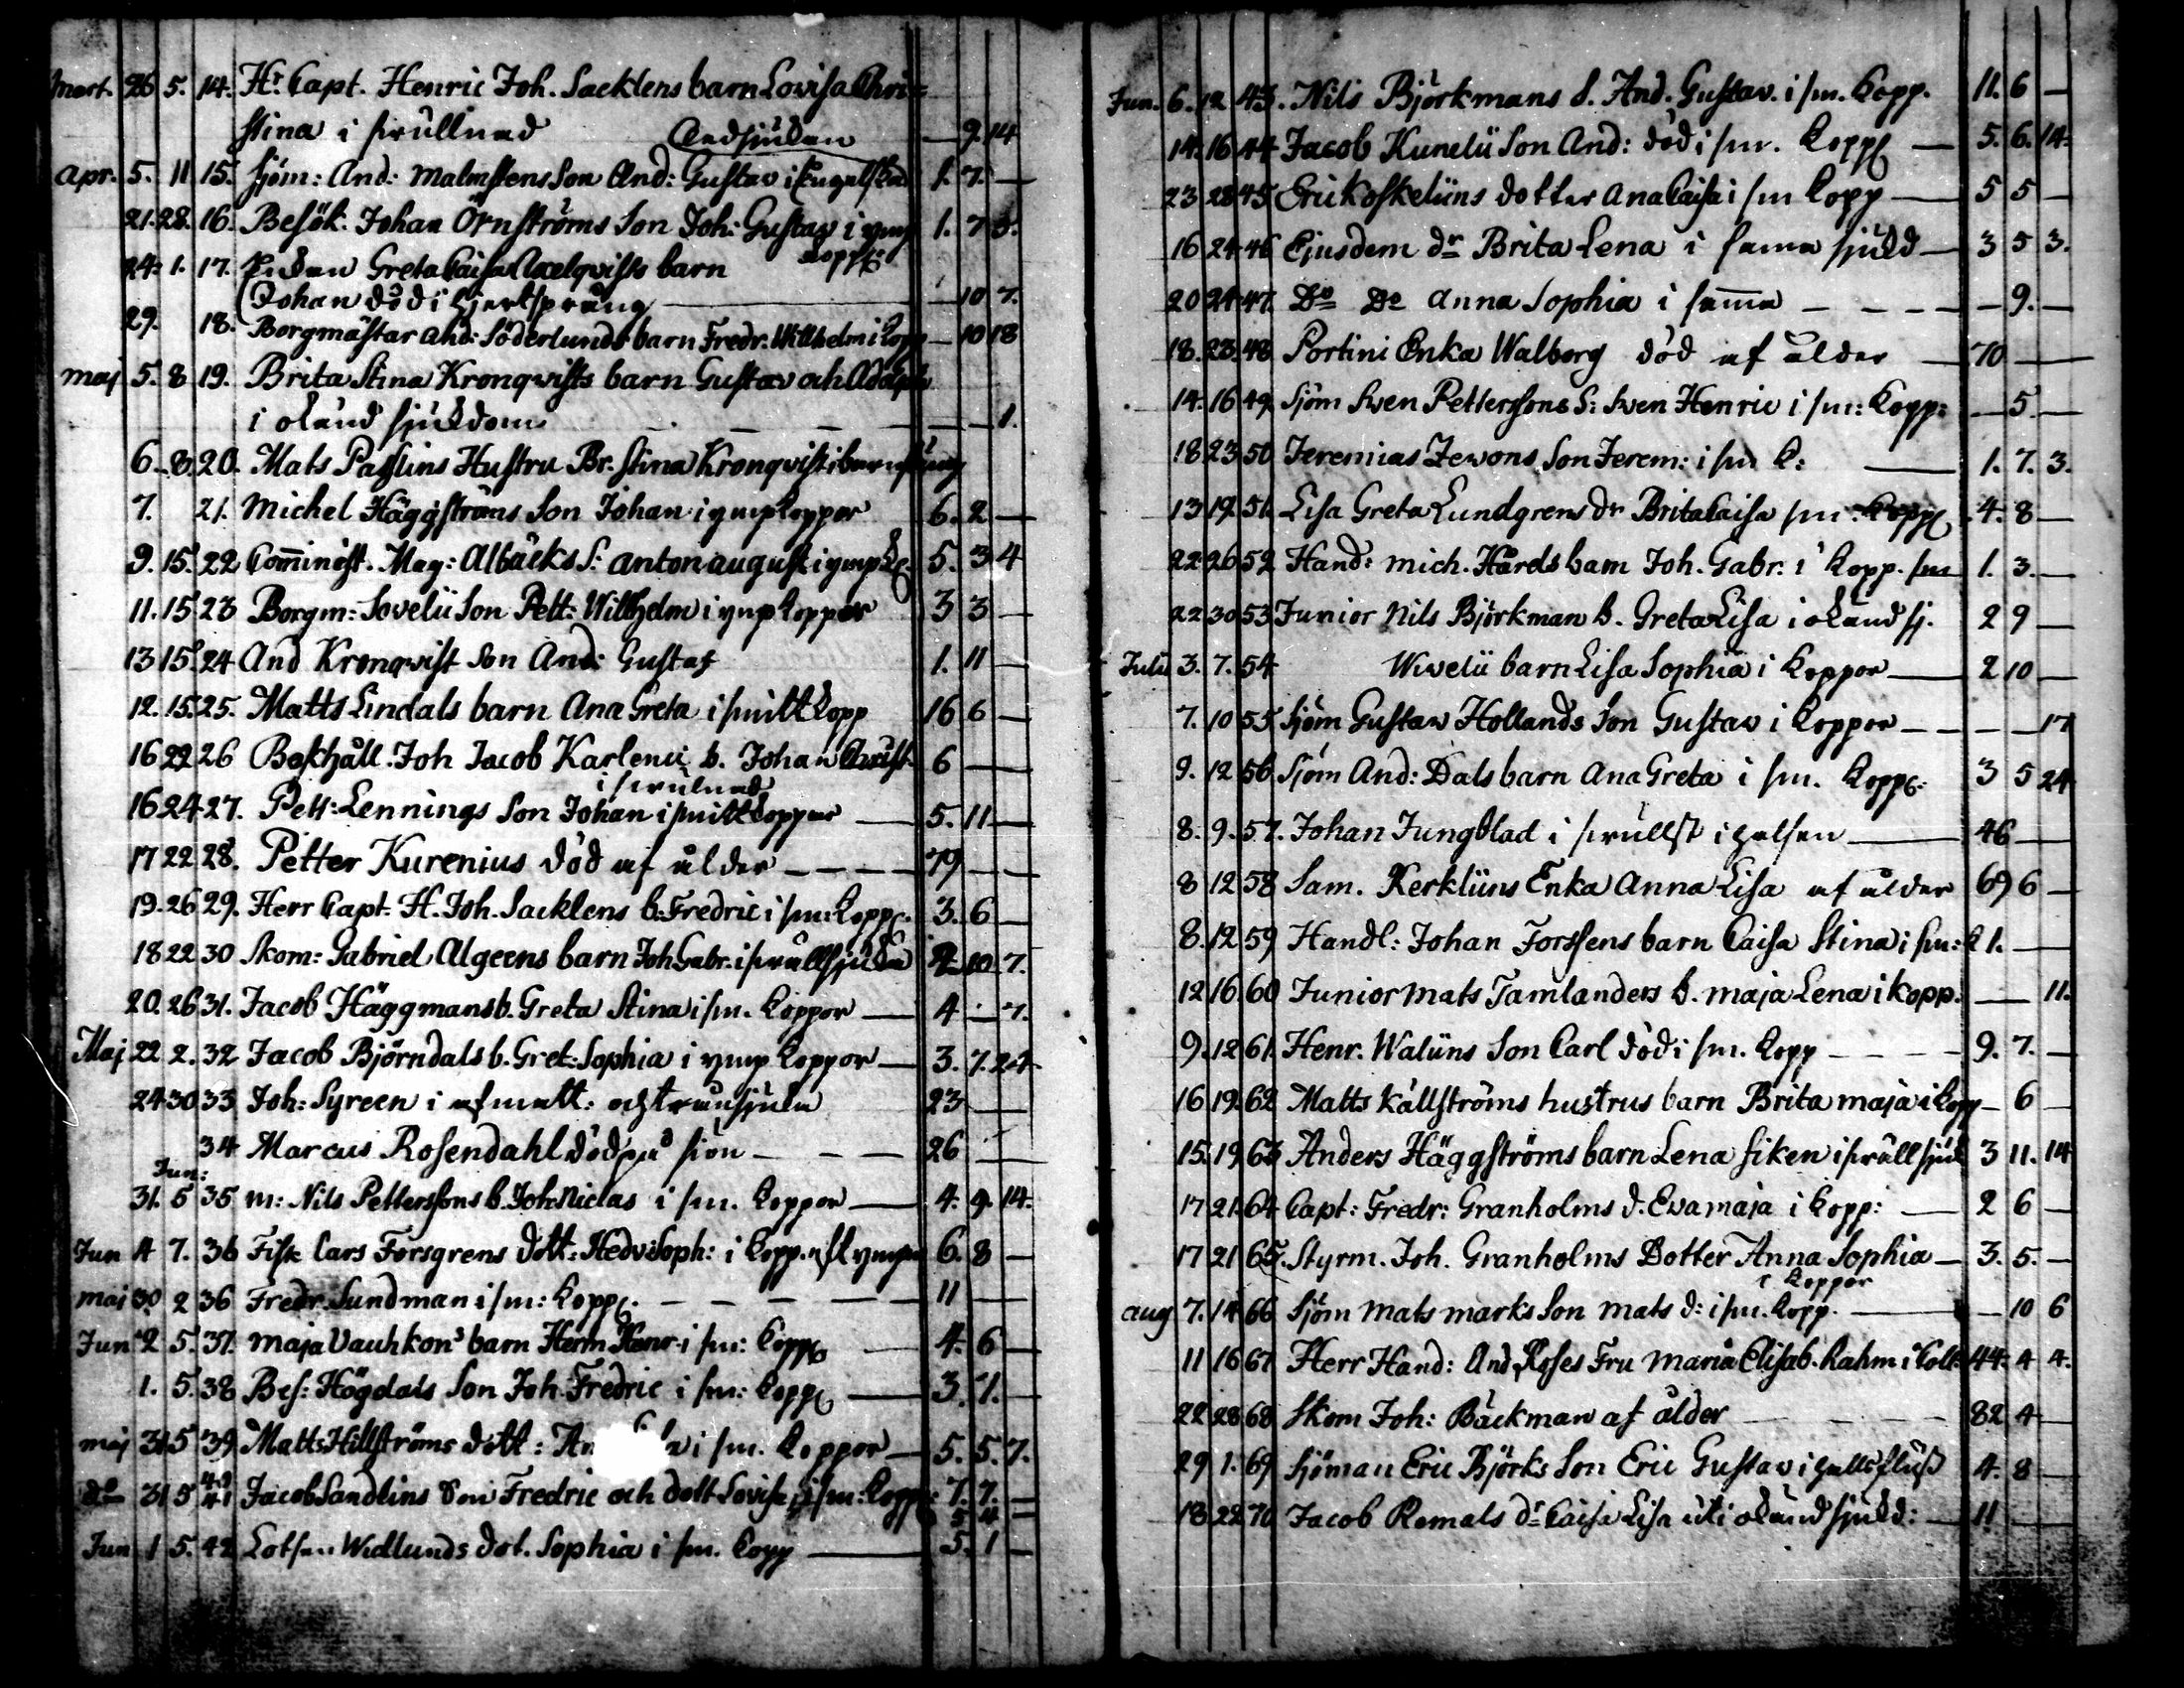 mart. 26 5. 14. Hr. Capt. Henric Joh. Sacklens barn Lovisa Chri=
stina i swullnad Andsjukan — 9. 14
Apr. 5. 11 15. Sjöm: And: Malmstens Son And: Gustav i 1. 7. —
21. 28. 16. Besök. Johan Örnströms Son Joh: Gustav i ymp 1. 7 3.
kopp:
24. 1. 17. Enkan Greta Caisa Axelqvists barn
Johan död i hjertsprång — 10 7.
29. 18. Borgmästar And: Söderlunds barn Fredr. Willhelm i kopp — 10 18
maj 5. 8 19. Brita Stina Kronqvists barn Gustav och Adolph
i okänd sjukdom — — 1.
6. 8. 20. Mats Passlins Hustru Br. Stina Kronqvist i barnsäng
7. 21. Michel Häggströms Son Johan i ympkoppor 6. 2 —
9. 15. 22 Com̄inist. Mag: Albäcks S: anton august i ymp k. 5. 3 4
11. 15 23 Borgm: Lovelii Son Pett: Willhelm i ymp koppor 3 3 —
13 15 24 And Kronqvist Son And: Gustaf 1. 11 —
12. 15. 25. Matts Lindals barn Ana Greta i smittkopp 16 6 —
16 22 26 Bokhåll. Joh Jacob Karlenii b. Johan Christ. 6 —
i swulnad
16 24 27. Pett: Lennings Son Johan i smittkoppor — 5. 11 —
17 22 28. Petter Kurenius död af ålder — — — — 79 — —
19. 26 29. Herr Capt. H. Joh. Sacklens b. Fredric i sm: kopp. 3. 6 —
18 22 30 Skom: Gabriel Algeens barn Joh Gabr. i swullsjuka 2 10 7.
20. 26 31. Jacob Häggmans b. Greta Stina i sm. koppor — 4 — 7.
Maj 22 2. 32 Jacob Björndals b. Gret: Sophia i ymp koppor — 3. 7. 24
24 30 33 Joh: Syreen i afmatt: och transjuka 23 —
34 Marcus Rosendahl död på sion — — — 26 —
Jun:
31. 5 35 m: Nils Petterssons b. Joh. Niclas i sm. koppor — 4. 9. 14.
Jun 4 7. 36 Fisk Lars Forsgrens dott: Hedv: Soph: i kopp. eft ympn 6. 8 —
maj 30 2 36 Fredr. Sundman i sm: kopp. — — — — 11 —
Jun 2 5. 37. Maja Vauhkons barn Herm Henr. i sm: kopp — 4. 6 —
1. 5. 38 Bes: Högdals Son Joh. Fredric i sm: kopp — 3. 7. —
maj 31 5 39. Matts Hillströms dott: An i sm. koppor — 5. 5. 7.
do 31 5 40 41 Jacob Sandlins Son Fredric och dott Lovisa i sm: kopp: 7. 7. —
5 4 —
Jun 1 5. 42 Lotsen Widlunds dot. Sophia i sm. kopp — 5. 1 —
Jun. 6. 12 43. Nils Björkmans S. And. Gustav. i sm. kopp. 11. 6 —
14. 16 44 Jacob Kunelii Son And: död i sm. kopp — 5. 6. 14.
23 28 45 Eric Koskeliins dotter Ana Caisa i sm kopp — 5 5 —
16 24 46 Ejusdem dr Brita Lena i sama sjukd — 3 5 3.
20 24 47. Do Do Anna Sophia i sam̄a — — — — 9. —
18. 23. 48 Portini Enka Walborg död af ålder — 70 —
14. 16 49. Sjöm Sven Petterssons S: Sven Henric i sm: kopp: — 5. —
18 23 50 Jeremias Zewons Son Jerem: i sm k: — 1. 7. 3.
13 19. 51. Lisa Greta Lundgrens dr Brita Caisa sm: kopp. 4. 8 —
22 26 52 Hand: mich. Hårds barn Joh. Gabr. i kopp. sm 1. 3. —
22 30 53 Junior Nils Björkman b. Greta Lisa i okänd sj. 2 9 —
Julii 3. 7. 54 Wivelii barn Lisa Sophia i koppor — 2 10 —
7. 10 55 Sjöm Gustaw Hollands Son Gustav i koppor — — — — 17
9. 12 56 Sjöm And: Dals barn Ana Greta i sm. kopp. 3 5 24
8. 9. 57. Johan Jungblad i swullst i halsen — 46 —
8 12 58 Sam. Kerkliins Enka Anna Lisa af ålder 69 6 —
8. 12 59 Handl: Johan Forssens barn Caisa Stina i sm: k 1. —
12 16 60 Junior Mats Tamlanders b. maja Lena i kopp. — 11.
9. 12 61. Henr. Waliins Son Carl död i sm. kopp — — — 9. 7. —
16 19. 62 Matts källströms hustrus barn Brita maja i kopp — 6 —
15. 19 63 Anders Häggströms barn Lena fiken i swällsjuk 3 11. 14
17 21. 64 Capt: Fredr: Granholms d. Eva maja i kopp: — 2 6 —
17 21 65. Styrm. Joh. Granholms Dotter Anna Sophia — 3. 5. —
i koppor
aug 7. 14 66 Sjöm mats marks Son mats d: i sm. kopp. — — 10 6
11 16 67 Herr Hand: And. Roses Fru maria Elisab. Rahm i 44. 4 4.
22 28 68 Skom Joh: Bäckman af ålder — — — 82 4 —
29 1. 69 Sjöman Eric Björks Son Eric Gustav i hallsfluß 4. 8 —
18 22 70 Jacob Remals dr Caisa Lisa uti okänd sjukd: — 11 —